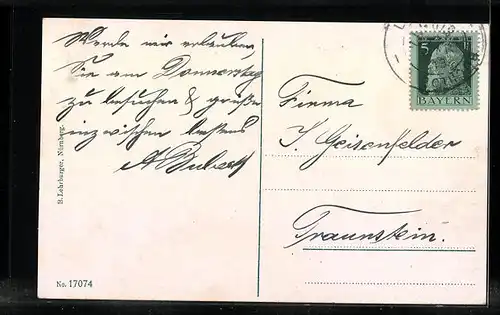 Werde mir erlauben,
Sie am Donnerstag
zu besuchen & grüße
inzwischen bestens
A Hubert
Firma
J. Geisenfelder
Traunstein.
5 Pf
BAYERN
B. Lehrburger, Nürnberg.
No. 17074